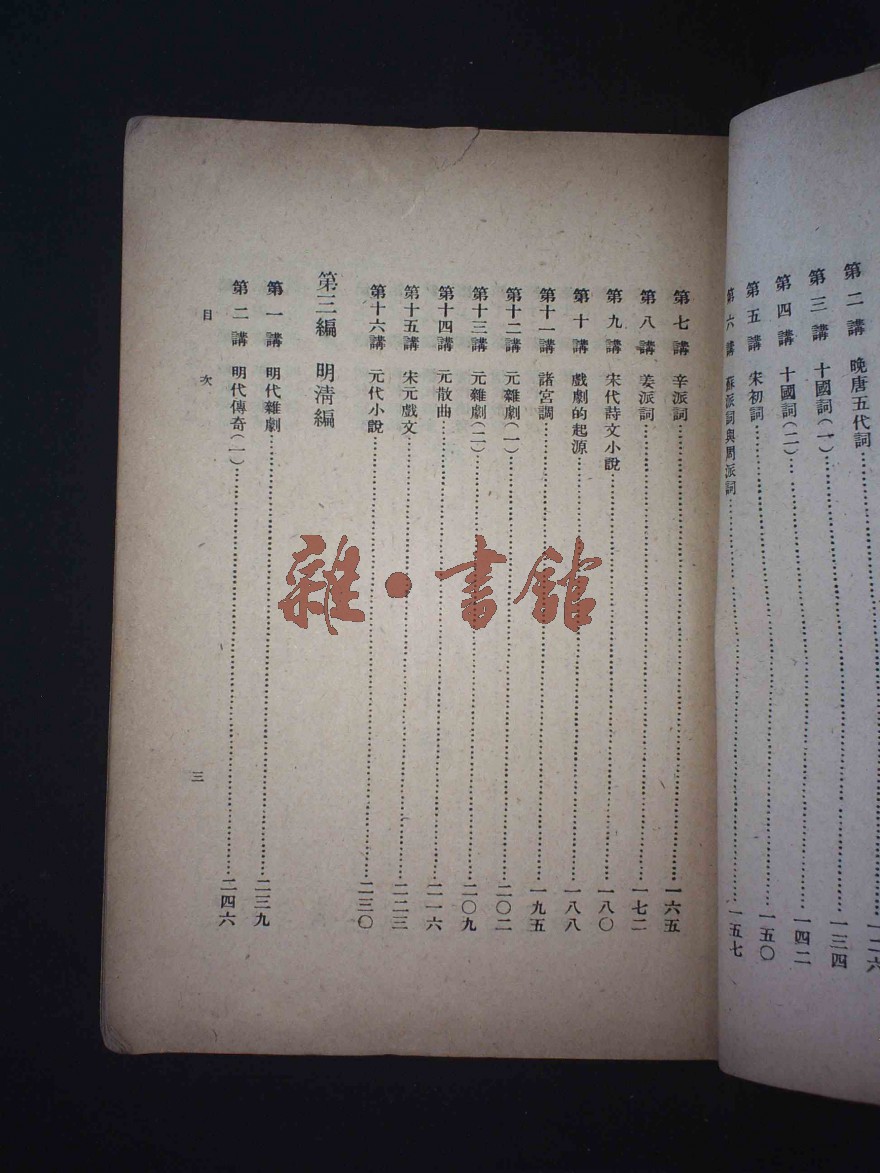 第二講　晚唐五代詞……一二六
第三講　十國詞(一)……一三四
第四講　十國詞(二)……一四二
第五講　宋初詞……一五〇
第六講　蘇派詞與周派詞……一五七
第七講　辛派詞……一六五
第八講　姜派詞……一七二
第九講　宋代詩文小說……一八〇
第十講　戲劇的起源……一八八
第十一講　諸宮調……一九五
第十二講　元雜劇(一)……二〇二
第十三講　元雜劇(二)……二〇九
第十四講　元散曲……二一六
第十五講　宋元戲文……二二三
第十六講　元代小說……二三〇
第三編　明淸編
第一講　明代雜劇……二三九
第二講　明代傳奇(一)……二四六
目次
三
雜·書館